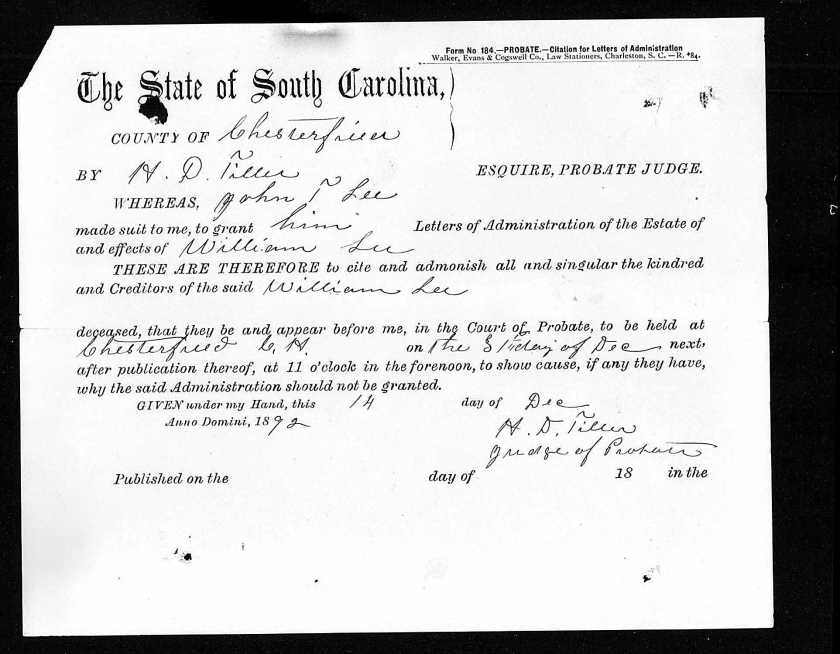 Form No 184.—PROBATE.—Citation for Letters of Administration
Walker, Evans & Cogswell Co., Law Stationers, Charleston, S. C.—R.
The State of South Carolina,
COUNTY OF Chesterfield
BY H. D. Tiller ESQUIRE, PROBATE JUDGE.
WHEREAS, John T Lee
made suit to me, to grant him Letters of Administration of the Estate of
and effects of William Lee
THESE ARE THEREFORE to cite and admonish all and singular the kindred
and Creditors of the said William Lee
deceased, that they be and appear before me, in the Court of Probate, to be held at
Chesterfield C. H. on the day of Dec next,
after publication thereof, at 11 o'clock in the forenoon, to show cause, if any they have,
why the said Administration should not be granted.
GIVEN under my Hand, this 14 day of Dec
Anno Domini, 1892
H. D. Tiller
Judge of Probate
Published on the day of 18 in the